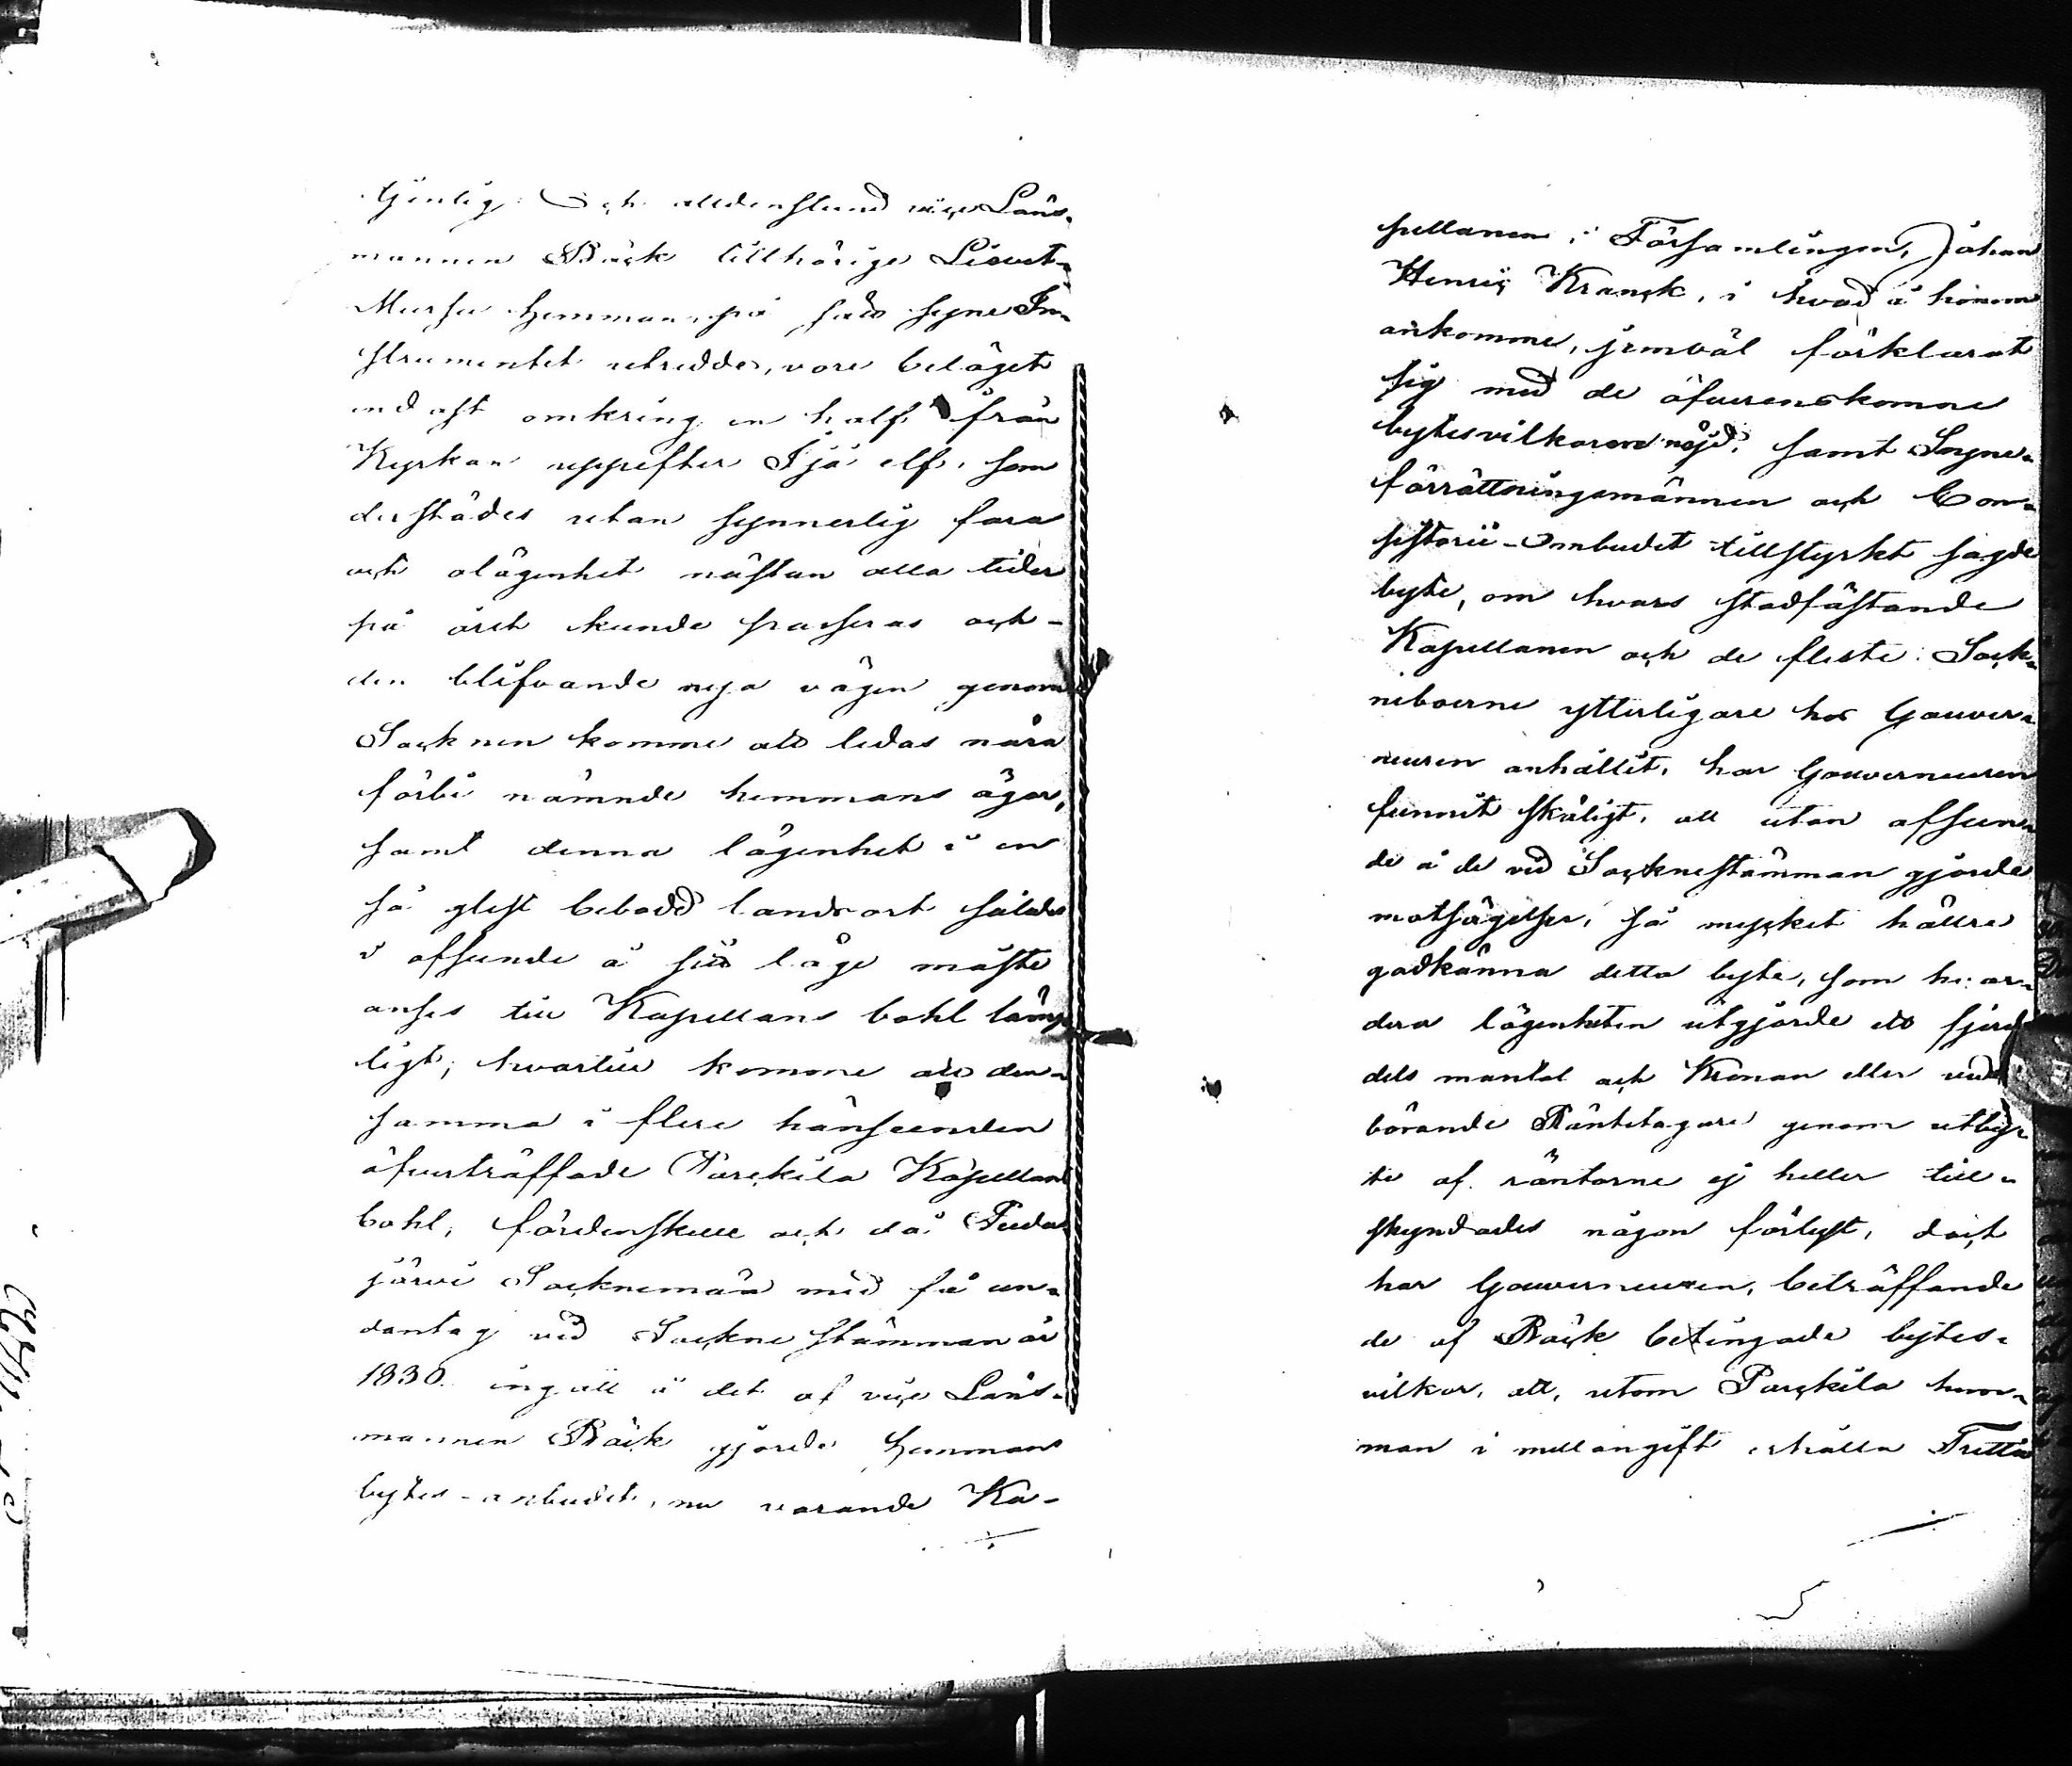 tjenlig: Och alldenstund vice Läns-
mannen Bäck tillhörige Liout-
Mursu Hemman, på sätt Syne In-
strumentet utredde, vore beläget
endast omkring en half från
Kyrkan uppefter Ijo elf, som
derstädes utan synnerlig fara
och olägenhet nästan alla tider
på året kunde passeras och
den blifvande nya vägen genom
Socknen komme att ledas nära
förbi nämnde hemmans ägor,
samt denna lägenhet i en
så glest bebodd landsort således
i afseende å sitt läge måste
anses till Kapellans bohl lämp
ligt; hvartill komme att den-
samma i flere hänseenden
öfverträffade Parckila Kapellans
bohl, fördenskull och då Pudas
järvi Socknemän med få un-
dantag vid Sockne stämman år
1830. ingått å det af vice Läns-
mannen Bäck gjorde Hemmans
bytes-anbudet, nu varande Ka-
pellanen i Församlingen, Johan
Henric Kranck, i hvad å honom
ankomme, jemväl förklarat
sig med de öfverenskomne
bytesvilkoren nöjd, samt Syne-
förrättningsmännen och Con-
sistorii-Ombudet tillstyrkt sagde
byte, om hvars stadfästande
Kapellanen och de fleste Sock-
neboerne ytterligare hos Gouver-
neuren anhållit, har Gouverneuren
funnit skäligt, att utan afseen-
de å de vid Socknestämman gjorde
motsägelser, så mycket hällre
godkänna detta byte, som hvar-
dera lägenheten utgjorde ett fjerde
dels mantal och Kronan eller veder
börande Räntetagare genom utby-
te af räntorne ej heller till-
skyndades någon förlust, doch
har Gouverneuren, beträffande
de af Bäck betingade bytes-
vilkor, att, utom Parckila hem-
man i mellangift erhålla Trettio